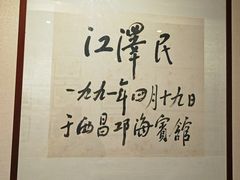 江澤民
一九九一年四月十九日
于西昌邛海賓館